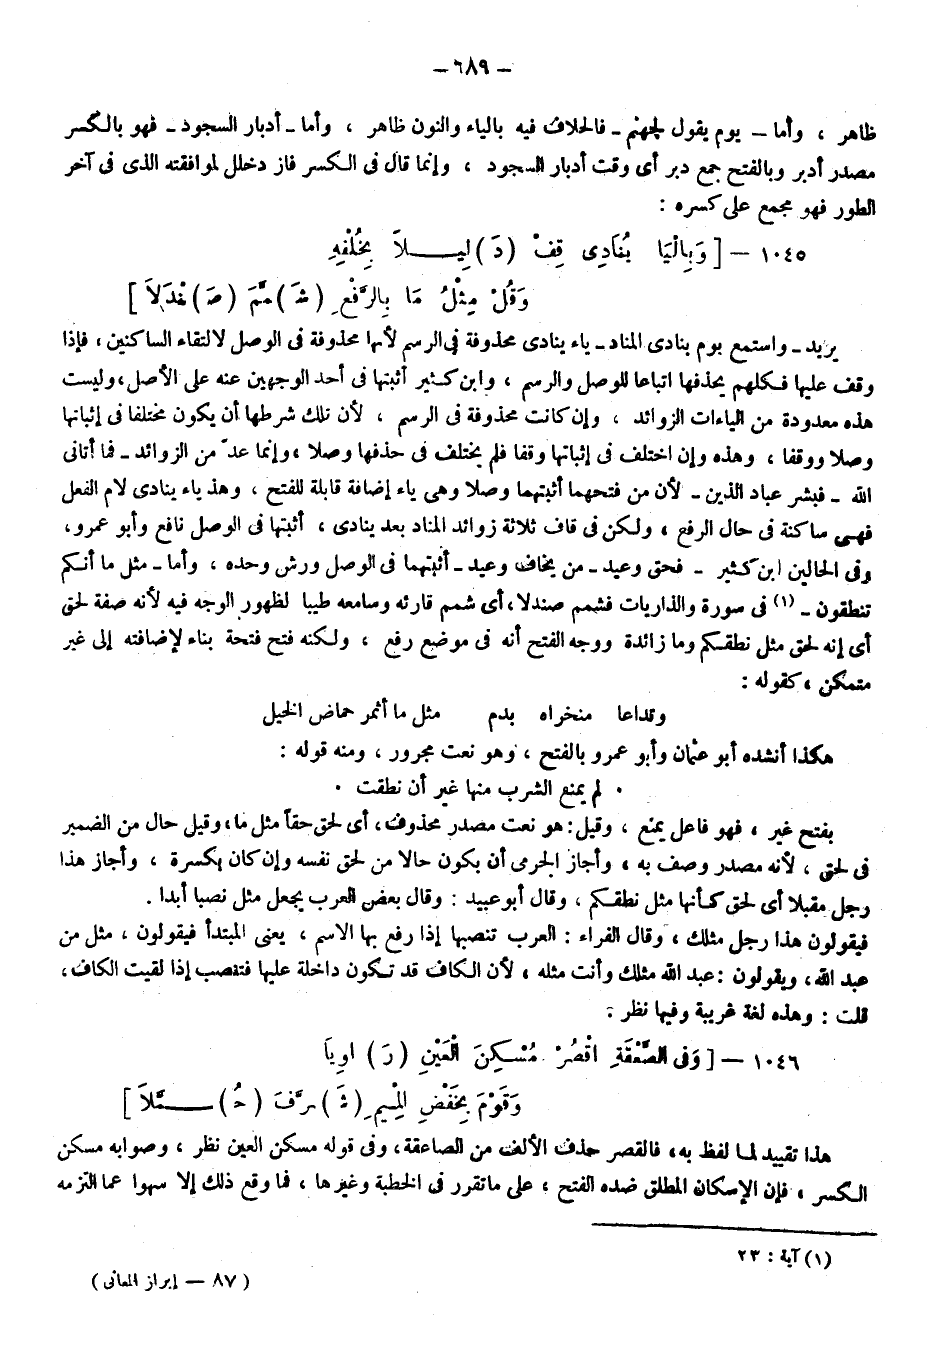 – ٦٨٩ –
ظاهر ، وأما – يوم يقول لجهنم – فالخلاف فيه بالياء والنون ظاهر ، وأما – أدبار السجود – فهو بالكسر
مصدر أدبر وبالفتح جمع دبر أى وقت أدبار السجود ، وإنما قال فى الكسر فاز دخلل لموافقته الذى فى آخر
الطور فهو مجمع على كسره :
١٠٤٥ – [ وَبِالْيَا يُنَادِى قِفْ (دَ)لِيــلاً بِخُلْفِهِ
وَقُلْ مِثْلُ مَا بِالرَّفْعِ (شَ)مَّمَ (صَ)نْدَلَا ]
يريد – واستمع يوم ينادى المناد – ياء ينادى محذوفة فى الرسم لأنها محذوفة فى الوصل لالتقاء الساكنين ، فإذا
وقف عليها فكلهم يحذفها اتباعا للوصل والرسم ، وابن كثير أثبتها فى أحد الوجهين عنه على الأصل، وليست
هذه معدودة من الياءات الزوائد ، وإن كانت محذوفة فى الرسم ، لأن تلك شرطها أن يكون مختلفا فى إثباتها
وصلا ووقفا ، وهذه وإن اختلف فى إثباتها وقفا فلم يختلف فى حذفها وصلا ، وإنما عدّ من الزوائد – فما أتانى
الله – فبشر عباد الذين – لأن من فتحهما أثبتهما وصلا وهى ياء إضافة قابلة للفتح ، وهذ ياء ينادى لام الفعل
فهى ساكنة فى حال الرفع ، ولكن فى قاف ثلاثة زوائد المناد بعد ينادى ، أثبتها فى الوصل نافع وأبو عمرو،
وفى الحالين ابن كثير – فحق وعيد – من يخاف وعيد – أثبتهما فى الوصل ورش وحده ، وأما – مثل ما أنكم
تنطقون – (١) فى سورة والذاريات فشمم صندلا، أى شمم قارئه وسامعه طيبا لظهور الوجه فيه لأنه صفة لحق
أى إنه لحق مثل نطقكم وما زائدة ووجه الفتح أنه فى موضع رفع ، ولكنه فتح فتحة بناء لإضافته إلى غير
متمكن ، كقوله :
وتداعا منخراه بدم مثل ما أثمر حماض الخيل
هكذا أنشده أبو عثمان وأبو عمرو بالفتح ، وهو نعت مجرور ، ومنه قوله :
• لم يمنع الشرب منها غير أن نطقت •
بفتح غير ، فهو فاعل يمنع ، وقيل: هو نعت مصدر محذوف، أى لحق حقاً مثل ما، وقيل حال من الضمير
فى لحق ، لأنه مصدر وصف به ، وأجاز الجرمى أن يكون حالا من لحق نفسه وإن كان بكسرة ، وأجاز هذا
رجل مقبلا أى لحق كأنها مثل نطقكم ، وقال أبو عبيد : وقال بعض العرب يجعل مثل نصبا أبدا .
فيقولون هذا رجل مثلك ، وقال الفراء : العرب تنصبها إذا رفع بها الاسم ، يعنى المبتدأ فيقولون ، مثل من
عبد الله، ويقولون : عبد الله مثلك وأنت مثله ، لأن الكاف قد تكون داخلة عليها فتنصب إذا لقيت الكاف،
قلت : وهذه لغة غريبة وفيها نظر .
١٠٤٦ – [ وَفى الصَّعْقَةِ اقْصُرْ مُسْكِنَ الْعَيْنِ (رَ) اوِياً
وَقَوْمَ بِخَفْضِ الْمِيمِ (شَ)رَّفَ (حُ)ـــمَّلاَ ]
هذا تقييد لما لفظ به، فالقصر حذف الألف من الصاعقة، وفى قوله مسكن العين نظر ، وصوابه مسكن
الكسر ، فإن الإسكان المطلق ضده الفتح ، على ما تقرر فى الخطبة وغيرها ، فما وقع ذلك إلا سهوا عما التزمه
(١) آية : ٢٣
( ٨٧ – إبراز المعانى )